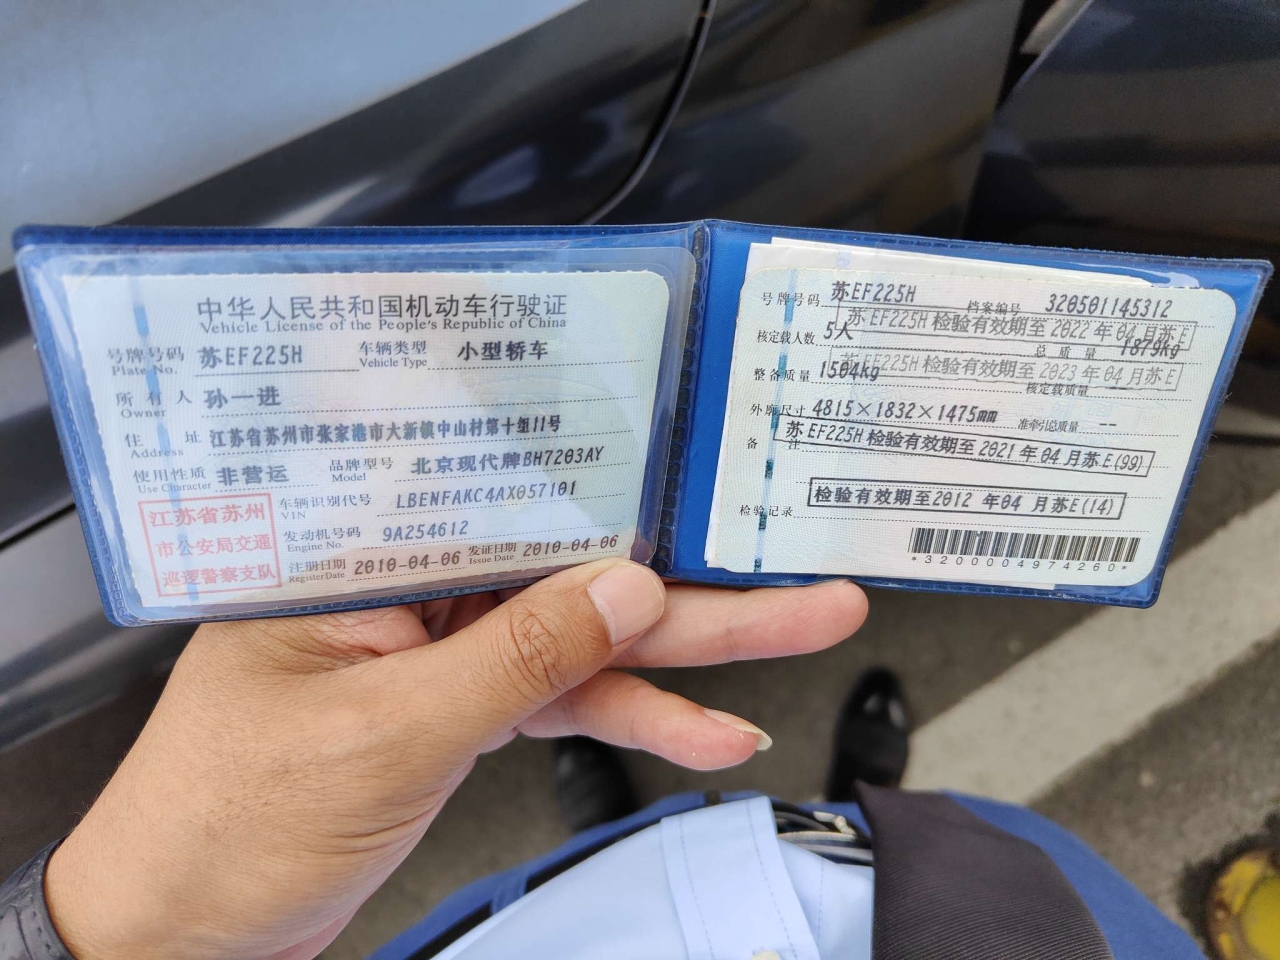 中华人民共和国机动车行驶证
Vehicle License of the People's Republic of China
号牌号码 苏EF225H 车辆类型 小型轿车
Plate No. Vehicle Type
所有人 孙一进
Owner
住址 江苏省苏州市张家港市大新镇中山村第十组11号
Address
使用性质 非营运 品牌型号 北京现代牌BH7203AY
Use Character Model
江苏省苏州
市公安局交通
巡逻警察支队
车辆识别代号 LBENFAKC4AX057101
VIN
发动机号码 9A254612
Engine No.
注册日期 2010-04-06 发证日期 2010-04-06
Register Date Issue Date
号牌号码 苏EF225H 档案编号 320501145312
苏EF225H 检验有效期至 2022 年 04 月苏E
核定载人数 5人 总质量 1879kg
苏EF225H 检验有效期至 2023 年 04 月苏E
整备质量 1504kg 核定载质量
外廓尺寸 4815×1832×1475mm 准牵引总质量 --
苏EF225H 检验有效期至 2021 年 04 月苏E(99)
备注
检验有效期至2012 年04 月苏E(14)
检验记录
*3200004974260*